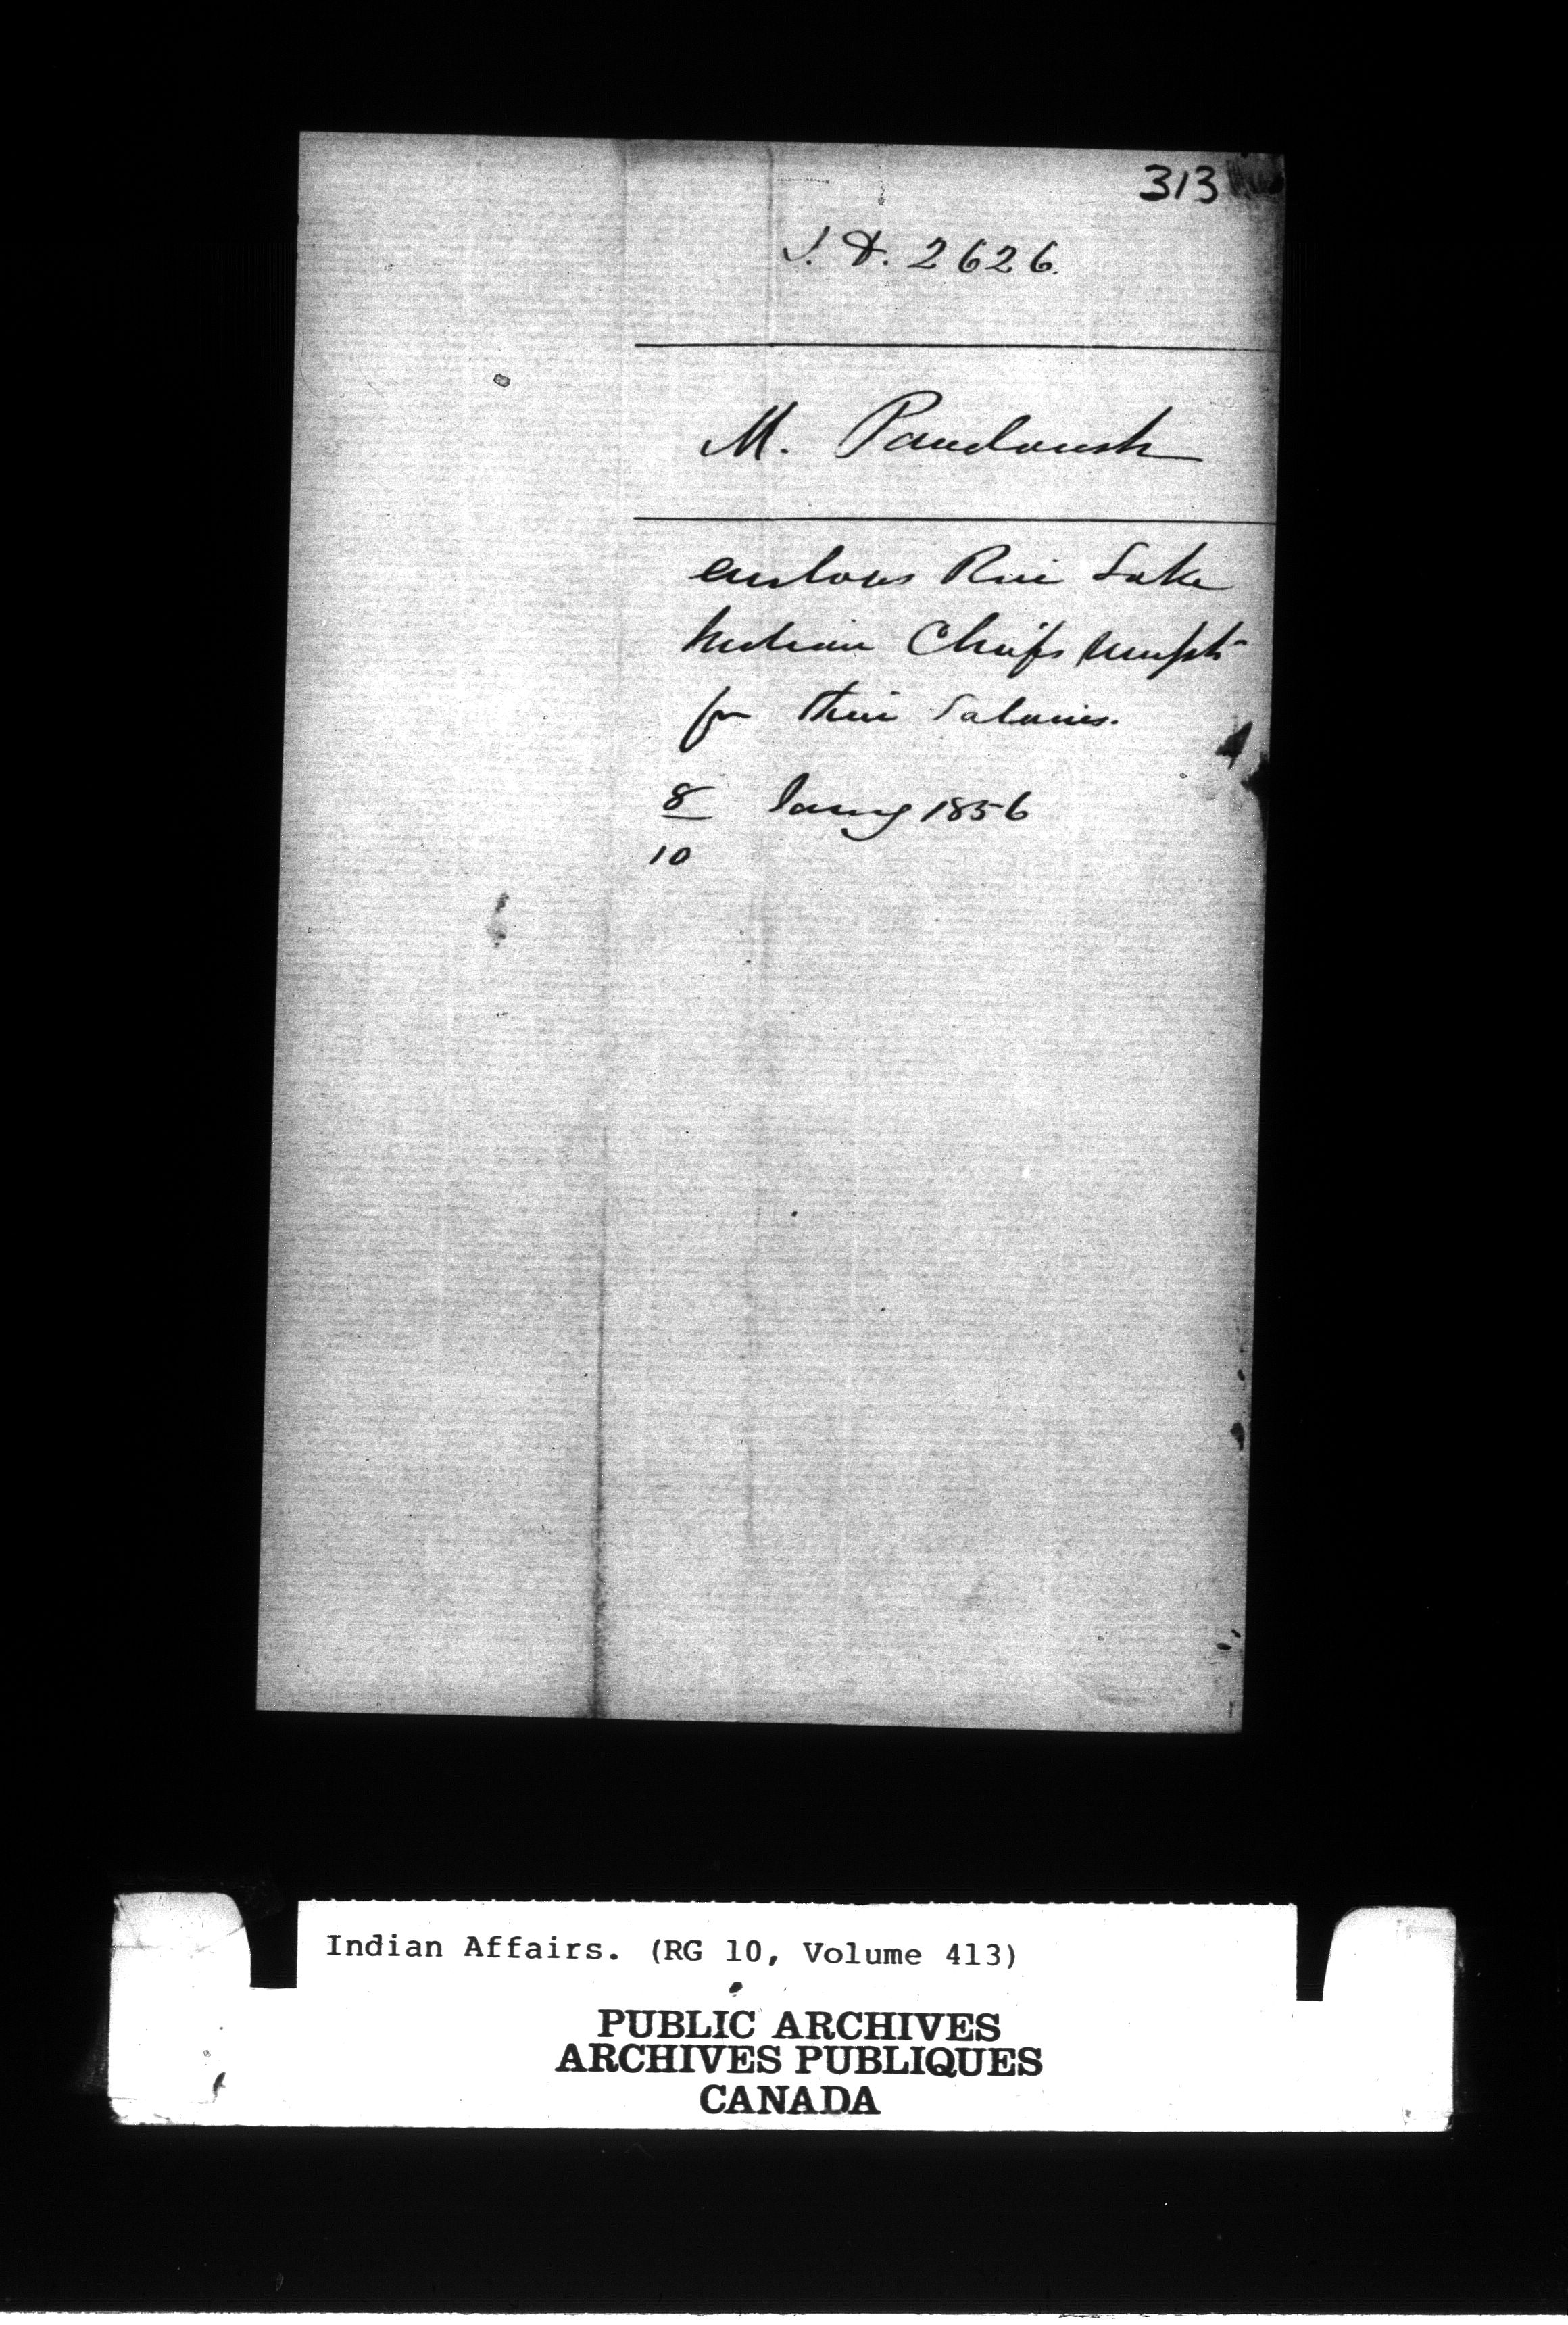 313
I. D. 2626.
M. Paudaush
encloses Rice Lake
Indian Chiefs receipt
for their Salaries.
8 Jany 1856
10
Indian Affairs. (RG 10, Volume 413)
PUBLIC ARCHIVES
ARCHIVES PUBLIQUES
CANADA